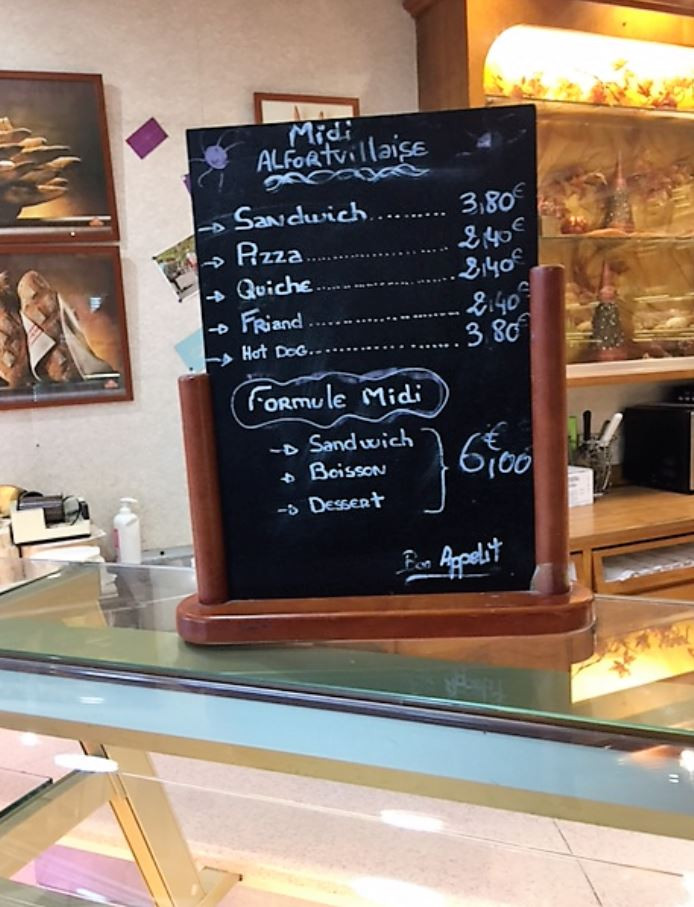 Midi
ALFORTVILLAISE
→ Sandwich......... 3,80€
→ Pizza.................... 2,40€
→ Quiche.................. 2,40€
→ Friand.................. 2,40€
→ Hot Dog.................. 3,80€
Formule Midi
→ Sandwich
→ Boisson
→ Dessert
6,00€
Bon Appetit